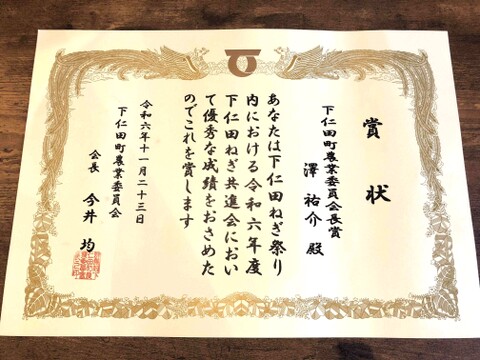 賞状
下仁田町農業委員会長賞
澤祐介殿
あなたは下仁田ねぎ祭り
内における令和六年度
下仁田ねぎ共進会におい
て優秀な成績をおさめた
のでこれを賞します
令和六年十一月二十三日
下仁田町農業委員会
会長 今井均